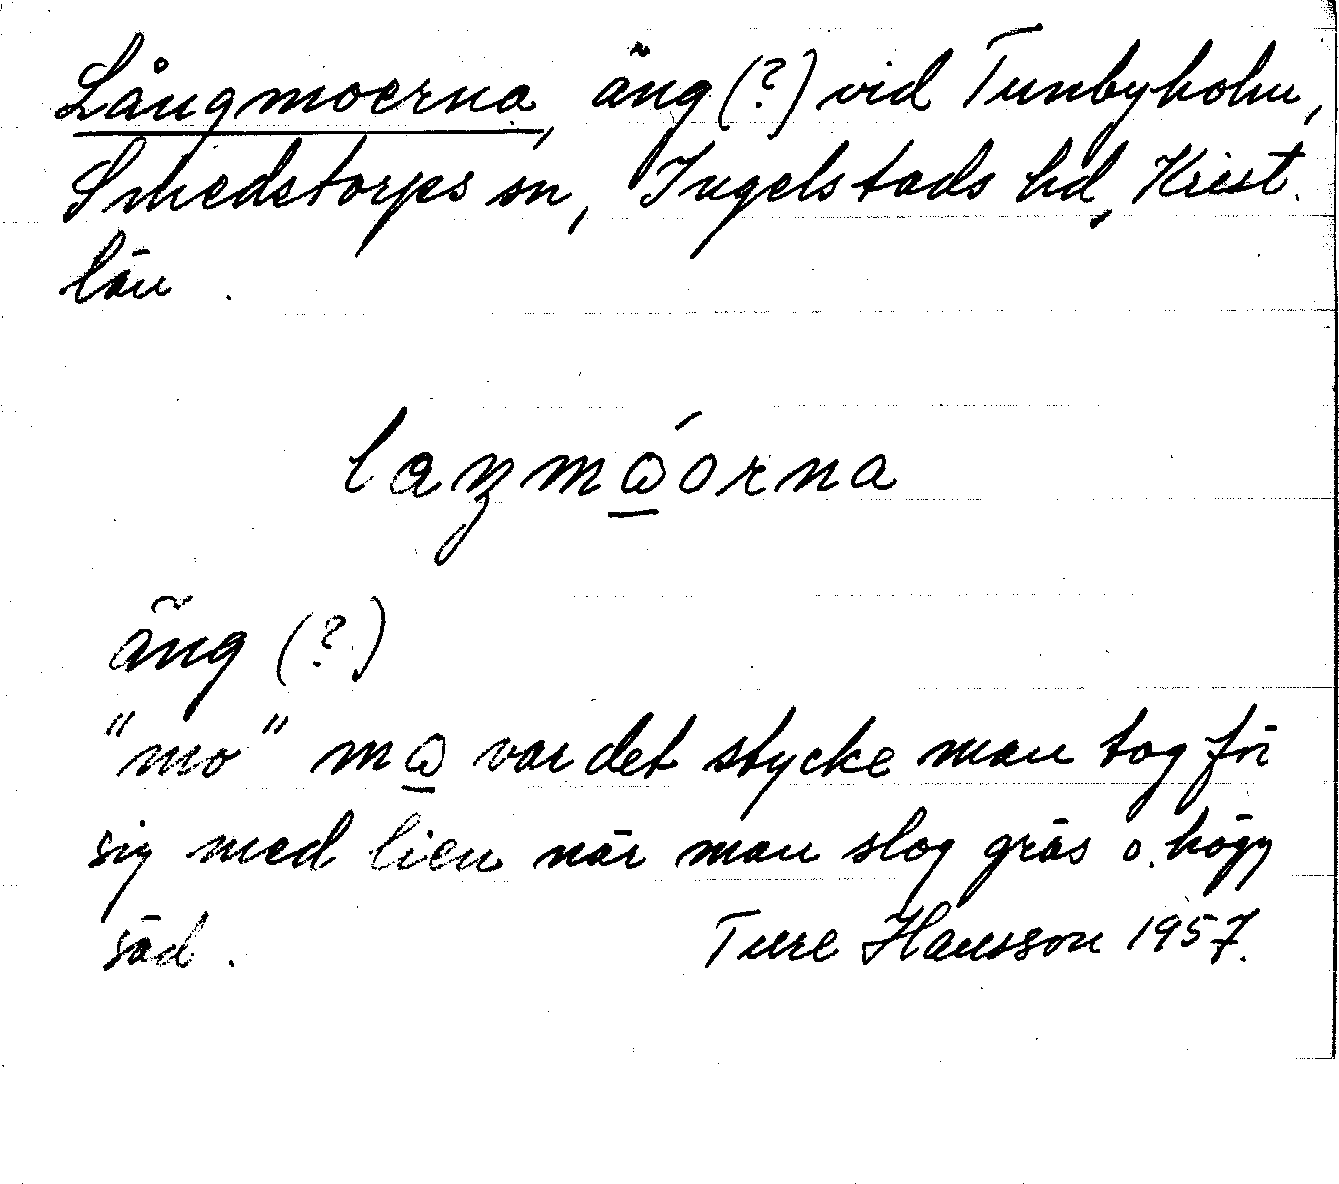 Långmoerna, äng (?) vid Tunbyholm,
Smedstorps sn, Ingelstads hd, Krist.
län.
äng (?)
"mo" var det stycke man tog för
sig med lien när man slog gräs o. högg
säd. Ture Hansson 1957.